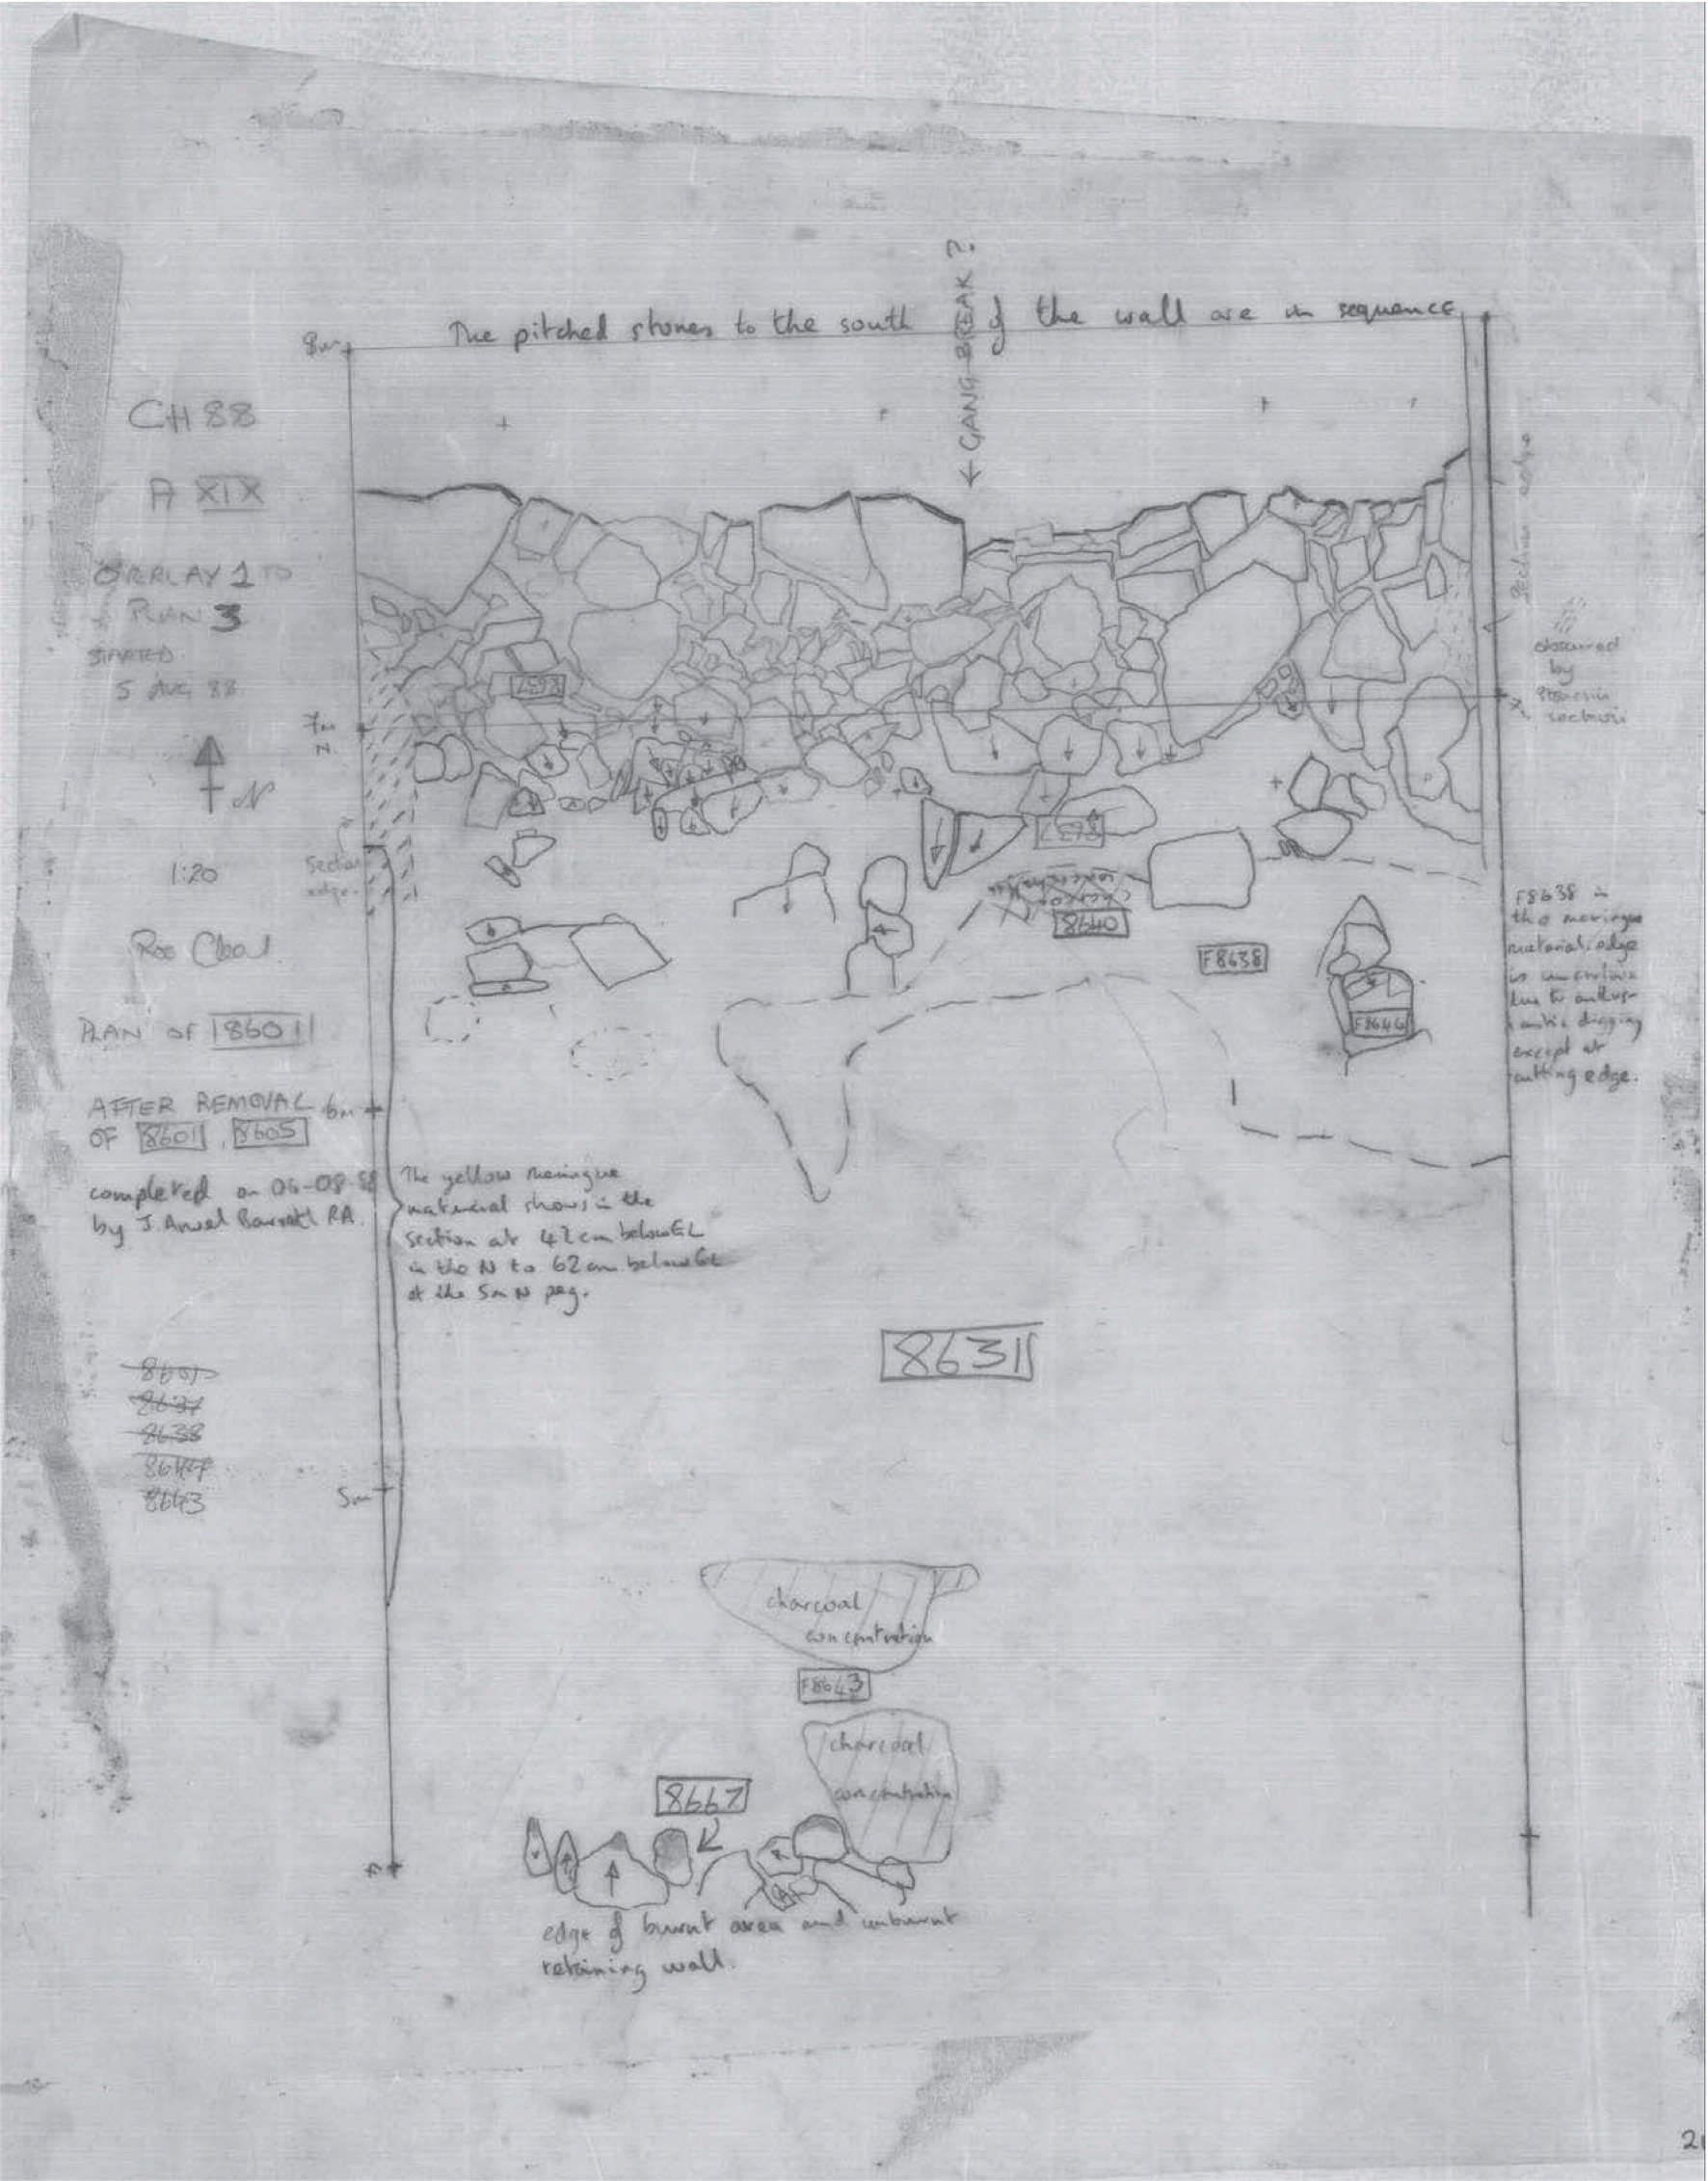 GANG-BREAK ?
The pitched stones to the south of the wall are in sequence
8m
CH 88
A XIX
OVERLAY 1 TO
PLAN 3
STARTED
5 AUG 88
N
1:20
PLAN OF 8601
AFTER REMOVAL
OF 8601, 8605
completed on 06-08-88
by J. Barrett RA.
8637
7m
N.
Section
edge
Section edge
obscured
by
section
8637
charcoal
concentration
8640
F8638
F8646
F8638 is
the meringue
material. edge
is
due to
digging
except at
cutting edge.
6m
The yellow meringue
material shows in the
section at 42cm below GL
in the N to 62cm below GL
at the 5m N peg.
8631
8637
8638
8643
5m
charcoal
concentration
F8643
charcoal
concentration
8667
edge of burnt area and unburnt
retaining wall.
21